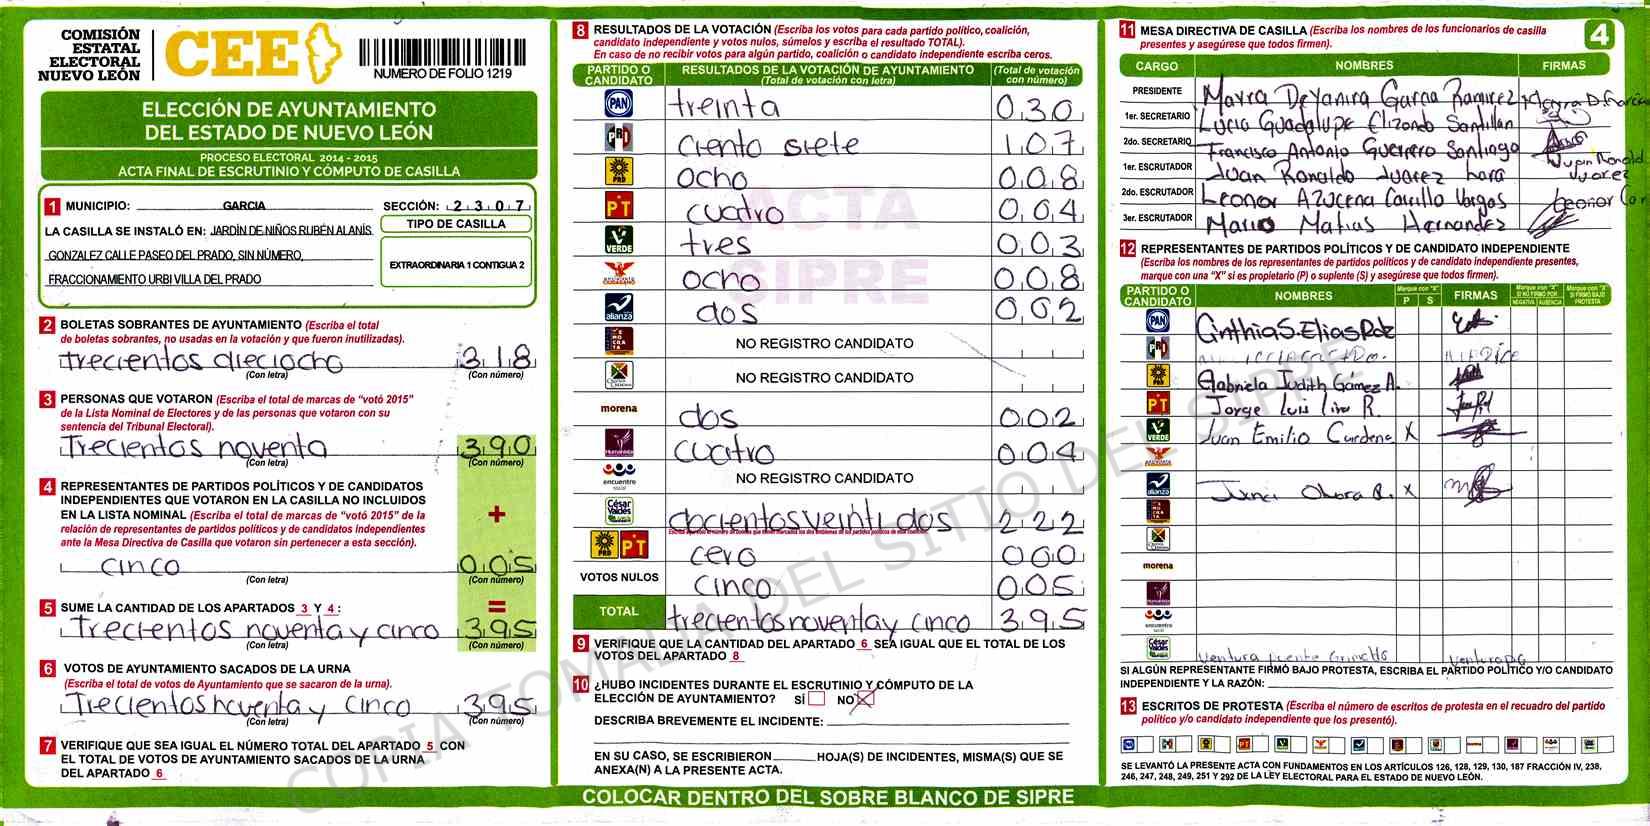 COMISIÓN
ESTATAL
ELECTORAL
NUEVO LEÓN
CEE
NUMERO DE FOLIO 1219
ELECCIÓN DE AYUNTAMIENTO
DEL ESTADO DE NUEVO LEÓN
PROCESO ELECTORAL 2014 - 2015
ACTA FINAL DE ESCRUTINIO Y CÓMPUTO DE CASILLA
1 MUNICIPIO: GARCIA SECCIÓN: 2 3 0 7
LA CASILLA SE INSTALÓ EN: JARDÍN DE NIÑOS RUBÉN ALANÍS
GONZALEZ CALLE PASEO DEL PRADO, SIN NÚMERO,
FRACCIONAMIENTO URBI VILLA DEL PRADO
TIPO DE CASILLA
EXTRAORDINARIA 1 CONTIGUA 2
2 BOLETAS SOBRANTES DE AYUNTAMIENTO (Escriba el total
de boletas sobrantes, no usadas en la votación y que fueron inutilizadas).
trecientos dieciocho 3 1 8
(Con letra) (Con número)
3 PERSONAS QUE VOTARON (Escriba el total de marcas de "votó 2015"
de la Lista Nominal de Electores y de las personas que votaron con su
sentencia del Tribunal Electoral).
Trecientos noventa 3 9 0
(Con letra) (Con número)
4 REPRESENTANTES DE PARTIDOS POLÍTICOS Y DE CANDIDATOS
INDEPENDIENTES QUE VOTARON EN LA CASILLA NO INCLUIDOS
EN LA LISTA NOMINAL (Escriba el total de marcas de "votó 2015" de la
relación de representantes de partidos políticos y de candidatos independientes
ante la Mesa Directiva de Casilla que votaron sin pertenecer a esta sección).
+
cinco 0 0 5
(Con letra) (Con número)
=
5 SUME LA CANTIDAD DE LOS APARTADOS 3 Y 4 :
Trecientos noventa y cinco 3 9 5
(Con letra) (Con número)
6 VOTOS DE AYUNTAMIENTO SACADOS DE LA URNA
(Escriba el total de votos de Ayuntamiento que se sacaron de la urna).
Trecientos noventa y cinco 3 9 5
(Con letra) (Con número)
7 VERIFIQUE QUE SEA IGUAL EL NÚMERO TOTAL DEL APARTADO 5 CON
EL TOTAL DE VOTOS DE AYUNTAMIENTO SACADOS DE LA URNA
DEL APARTADO 6
8 RESULTADOS DE LA VOTACIÓN (Escriba los votos para cada partido político, coalición,
candidato independiente y votos nulos, súmelos y escriba el resultado TOTAL).
En caso de no recibir votos para algún partido, coalición o candidato independiente escriba ceros.
PARTIDO O CANDIDATO RESULTADOS DE LA VOTACIÓN DE AYUNTAMIENTO (Total de votación con letra) (Total de votación con número)
PAN treinta 0 3 0
PRI ciento siete 1 0 7
PRD ocho 0 0 8
PT cuatro 0 0 4
VERDE tres 0 0 3
ocho 0 0 8
alianza dos 0 0 2
NO REGISTRO CANDIDATO
NO REGISTRO CANDIDATO
morena dos 0 0 2
Humanista cuatro 0 0 4
encuentro social NO REGISTRO CANDIDATO
César Valdés docientos veinti dos 2 2 2
PRD PT cero 0 0 0
VOTOS NULOS cinco 0 0 5
TOTAL trecientos noventa y cinco 3 9 5
9 VERIFIQUE QUE LA CANTIDAD DEL APARTADO 6 SEA IGUAL QUE EL TOTAL DE LOS
VOTOS DEL APARTADO 8
10 ¿HUBO INCIDENTES DURANTE EL ESCRUTINIO Y CÓMPUTO DE LA
ELECCIÓN DE AYUNTAMIENTO? SÍ NO X
DESCRIBA BREVEMENTE EL INCIDENTE:
EN SU CASO, SE ESCRIBIERON HOJA(S) DE INCIDENTES, MISMA(S) QUE SE
ANEXA(N) A LA PRESENTE ACTA.
COLOCAR DENTRO DEL SOBRE BLANCO DE SIPRE
ACTA
SIPRE
COPIA TOMADA DEL SITIO DEL SIPRE
11 MESA DIRECTIVA DE CASILLA (Escriba los nombres de los funcionarios de casilla
presentes y asegúrese que todos firmen).
4
CARGO NOMBRES FIRMAS
PRESIDENTE Mayra Deyanira Garcia Ramirez Mayra D. Garcia
1er. SECRETARIO Lucia Guadalupe Elizondo Santillan
2do. SECRETARIO Francisco Antonio Guerrero Santiago
1er. ESCRUTADOR Juan Ronaldo Juarez Lara Juan Ronaldo Juarez
2do. ESCRUTADOR Leonor Azucena Carrillo Vargas Leonor Car
3er. ESCRUTADOR Mario Matias Hernandez
12 REPRESENTANTES DE PARTIDOS POLÍTICOS Y DE CANDIDATO INDEPENDIENTE
(Escriba los nombres de los representantes de partidos políticos y de candidato independiente presentes,
marque con una "X" si es propietario (P) o suplente (S) y asegúrese que todos firmen).
PARTIDO O CANDIDATO NOMBRES Marque con "X" P S FIRMAS Marque con "X" SI NO FIRMÓ POR NEGATIVA AUSENCIA Marque con "X" SI FIRMÓ BAJO PROTESTA
PAN Cinthia S. Elias Rdz
PRI
PRD Gabriela Judith Gámez A.
PT Jorge Luis R.
VERDE Juan Emilio Cardena X
alianza X
morena
Humanista
encuentro social
César Valdés Ventura
SI ALGÚN REPRESENTANTE FIRMÓ BAJO PROTESTA, ESCRIBA EL PARTIDO POLÍTICO Y/O CANDIDATO
INDEPENDIENTE Y LA RAZÓN:
13 ESCRITOS DE PROTESTA (Escriba el número de escritos de protesta en el recuadro del partido
político y/o candidato independiente que los presentó).
SE LEVANTÓ LA PRESENTE ACTA CON FUNDAMENTOS EN LOS ARTÍCULOS 126, 128, 129, 130, 187 FRACCIÓN IV, 238,
246, 247, 248, 249, 251 Y 292 DE LA LEY ELECTORAL PARA EL ESTADO DE NUEVO LEÓN.